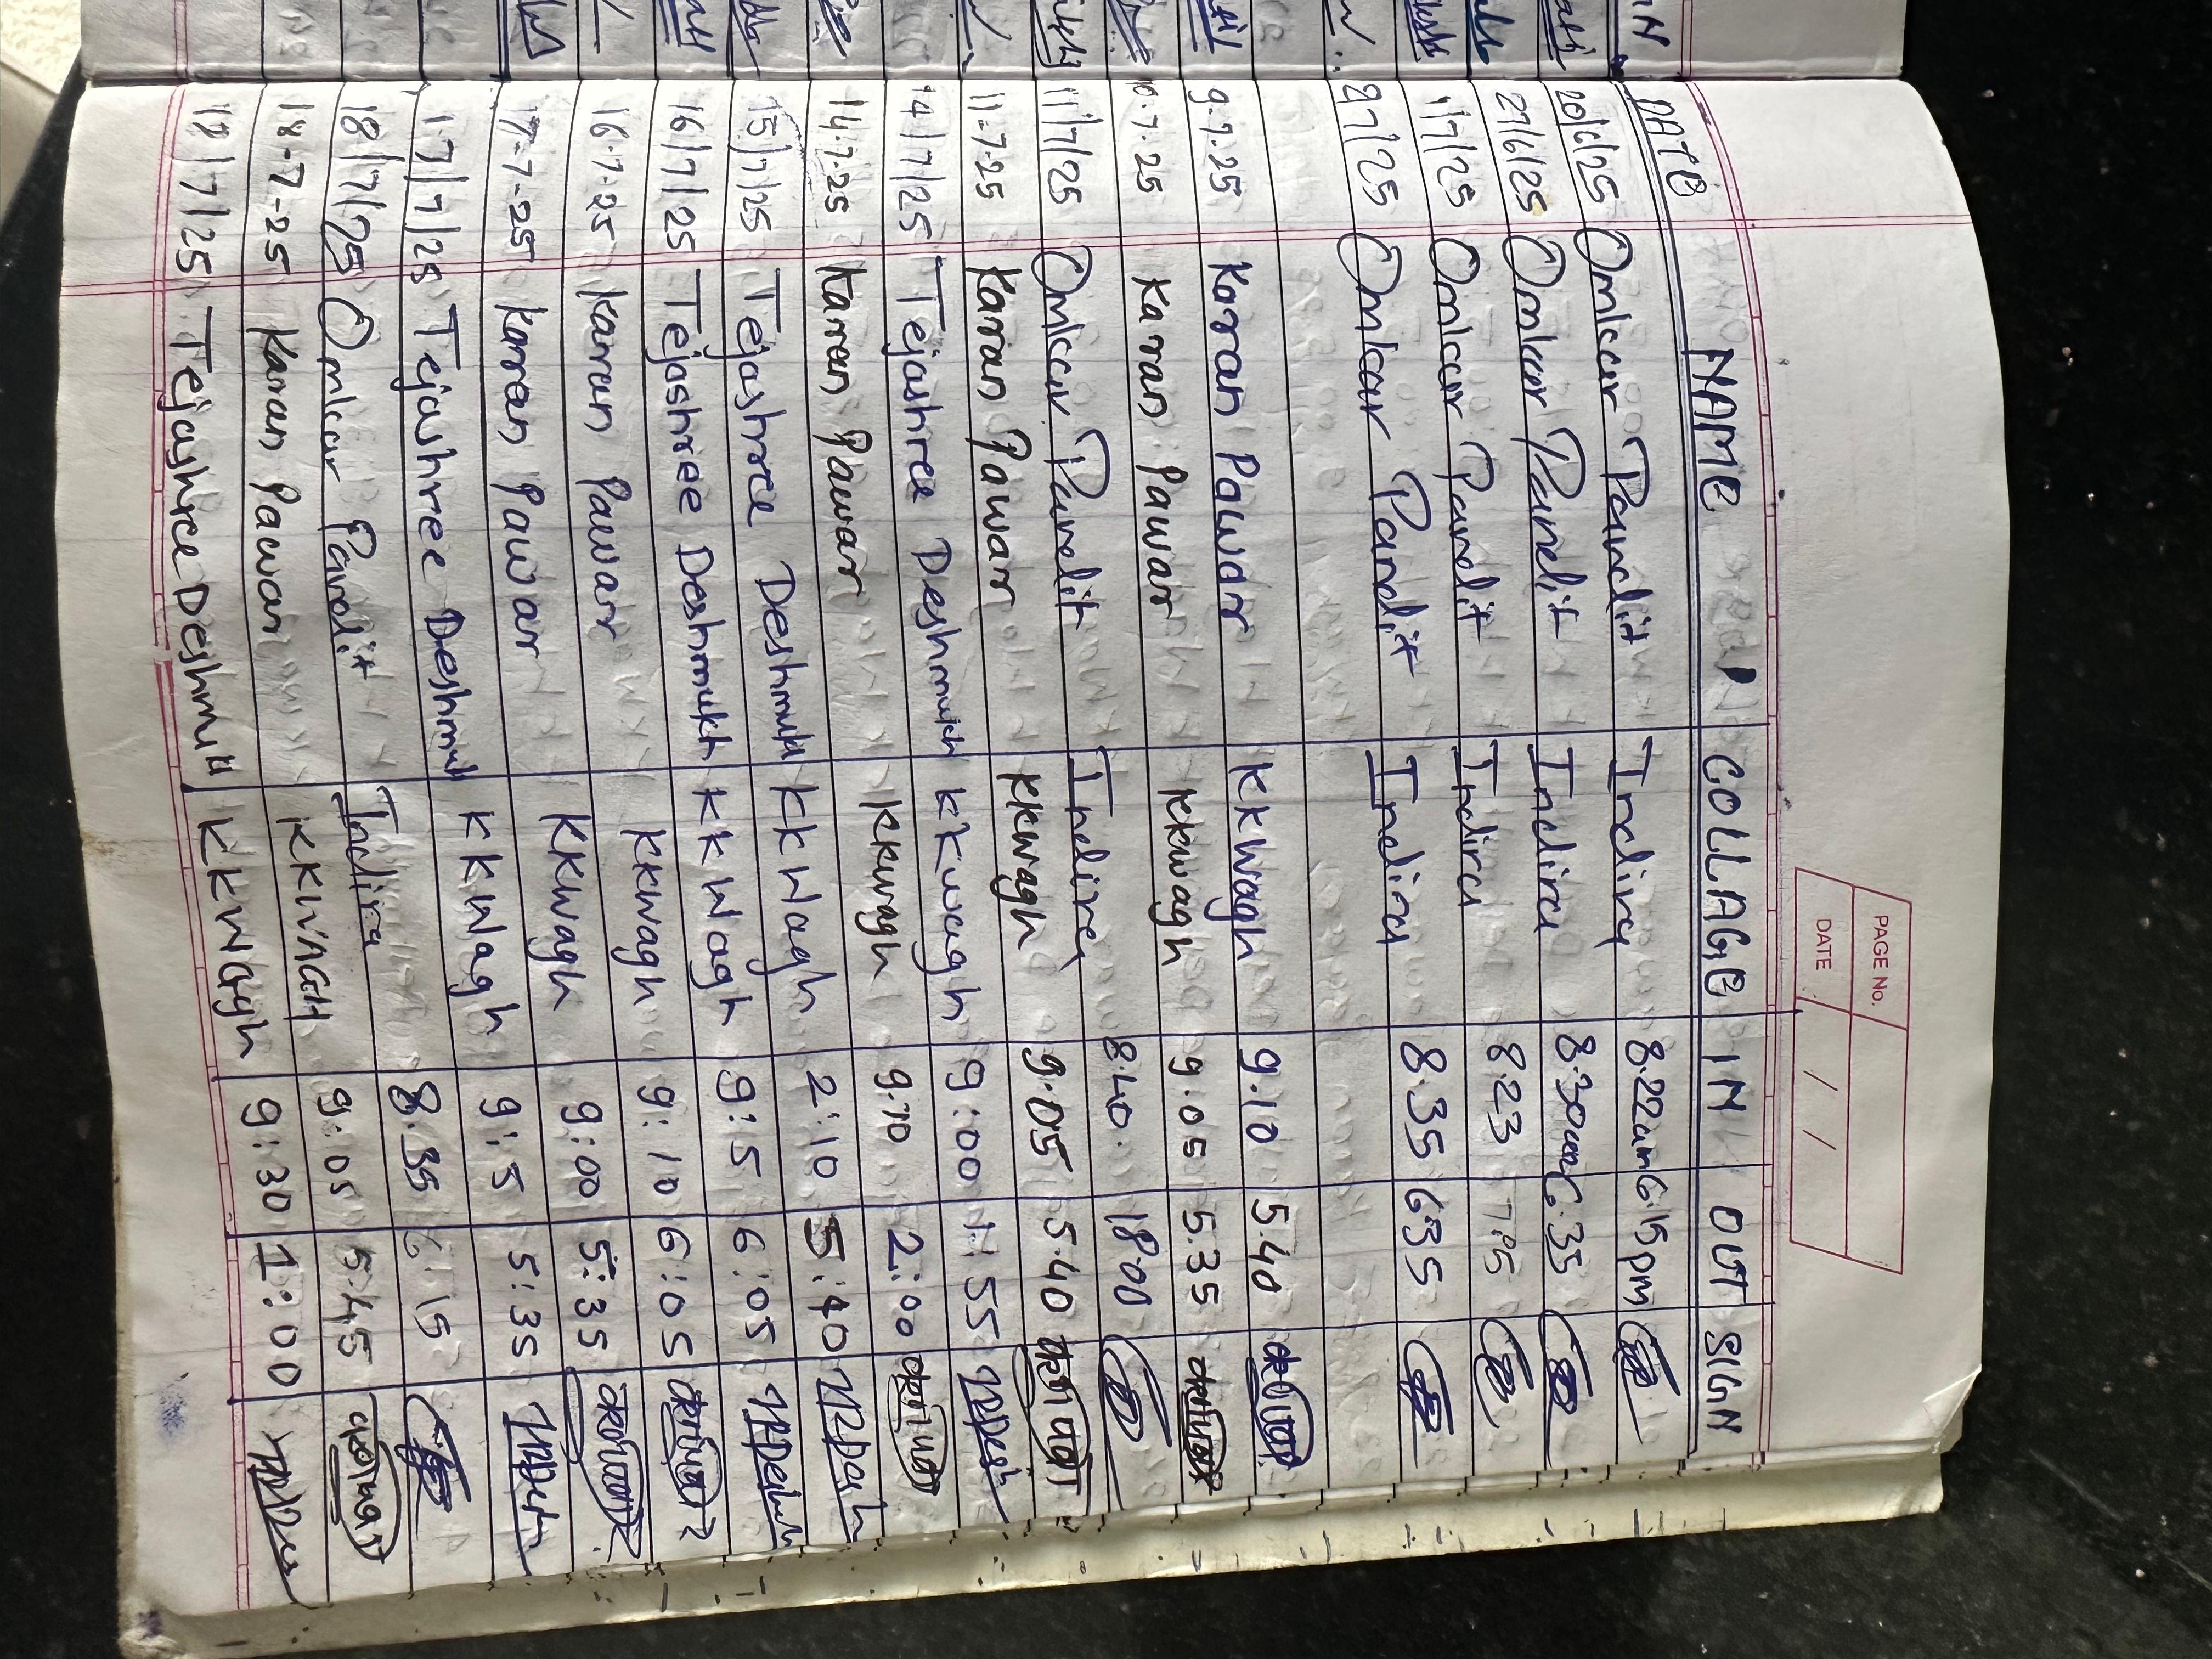 PAGE No.
DATE / /
DATE NAME COLLAGE IN OUT SIGN
20/6/25 Omkar Pandit Indira 8.22am 6.15pm
27/6/25 Omkar Pandit Indira 8.30am 6.35
1/7/25 Omkar Pandit Indira 8.23 7.05
2/7/25 Omkar Pandit Indira 8.35 635
9.7.25 Karan Pawar KKWagh 9.10 5.40
10.7.25 Karan Pawar KKWagh 9.05 5.35
11/7/25 Omkar Pandit Indira 8.40 18.00
11.7.25 Karan Pawar KKWagh 9.05 5.40
14/7/25 Tejashree Deshmukh KKWagh 9:00 1:55
14.7.25 Karan Pawar KKWagh 9.10 2:00
15/7/25 Tejashree Deshmukh KKWagh 2:10 5:40
16/7/25 Tejashree Deshmukh KKWagh 9:5 6:05
16.7.25 Karan Pawar KKWagh 9:10 6:05
17-7-25 Karan Pawar KKWagh 9:00 5:35
17/7/25 Tejashree Deshmukh KKWagh 9:5 5:35
18/7/25 Omkar Pandit Indira 8.35 6.15
18-7-25 Karan Pawar KKWAGH 9:05 5:45
18/7/25 Tejashree Deshmukh KKWagh 9:30 1:00